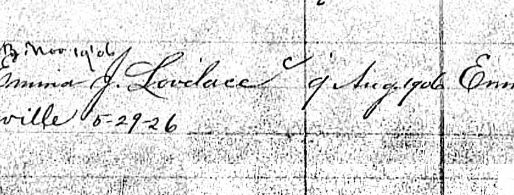 Nov. 19/06
Emma J. Lovelace c 9 Aug. 1906 Em
ville 5-29-26